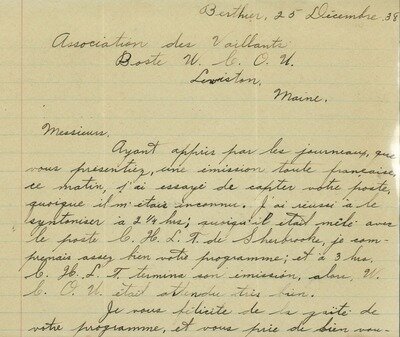 Berthier, 25 Décembre 38
Association des Vaillants
Poste W. C. O. U.
Lewiston,
Maine.
Messieurs,
Ayant appris par les journeaux, que
vous présentiez, une émission toute française,
ce matin, j'ai essayé de capter votre poste,
quoique il m'était inconnu. J'ai réussi à le
syntoniser à 2 1/4 hrs; quoiqu'il était mêlé avec
le poste C. H. L. T. de Sherbrooke, je com-
prenais assez bien votre programme; et à 3 hrs.
C. H. L. T termine son émission, alors, W.
C. O. U. était entendu très bien.
Je vous félicite de la
votre programme, et vous prie de bien vou-